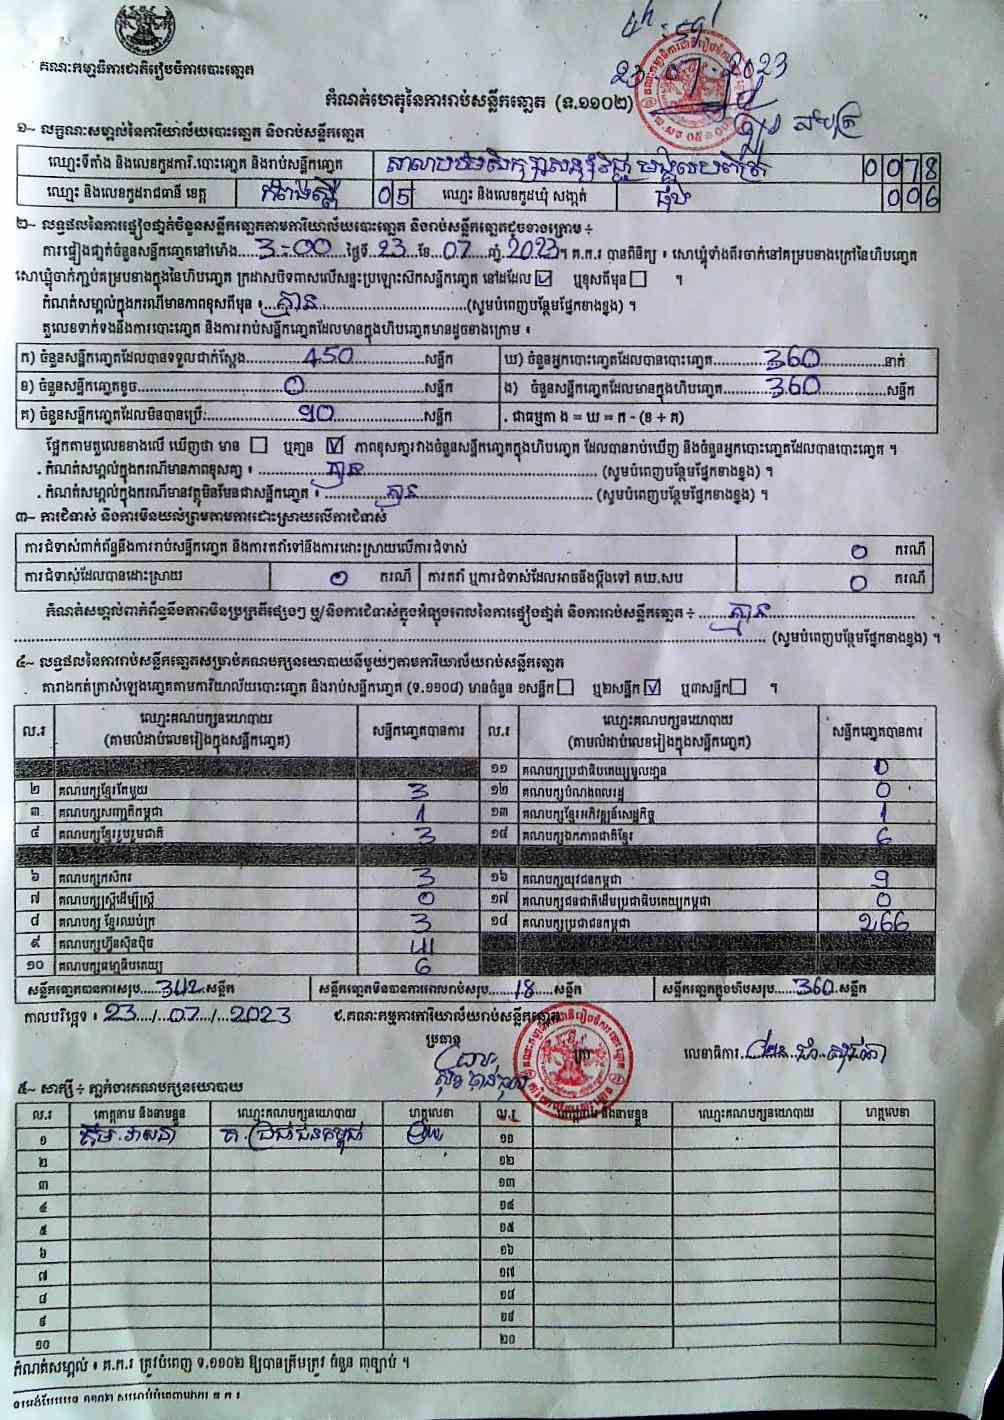 4h : 59'
23.07.2023
គណៈកម្មាធិការជាតិរៀបចំការបោះឆ្នោត
កំណត់ហេតុនៃការរាប់សន្លឹកឆ្នោត (ទ.១១០២)
១~ លក្ខណៈសម្គាល់នៃការិយាល័យបោះឆ្នោត និងរាប់សន្លឹកឆ្នោត
ឈ្មោះទីតាំង និងលេខកូដការិ.បោះឆ្នោត និងរាប់សន្លឹកឆ្នោត 0078
ឈ្មោះ និងលេខកូដរាជធានី ខេត្ត កំពង់ស្ពឺ 05 ឈ្មោះ និងលេខកូដឃុំ សង្កាត់ 006
២~ លទ្ធផលនៃការផ្ទៀងផ្ទាត់ចំនួនសន្លឹកឆ្នោតតាមការិយាល័យបោះឆ្នោត និងរាប់សន្លឹកឆ្នោតដូចខាងក្រោម ÷
ការផ្ទៀងផ្ទាត់ចំនួនសន្លឹកឆ្នោតនៅម៉ោង 3:00 ថ្ងៃទី 23 ខែ 07 ឆ្នាំ 2023 ។ គ.ក.រ បានពិនិត្យ ៖ សោឃ្មុំទាំងពីរចាក់នៅគម្របខាងក្រៅនៃហិបឆ្នោត
សោឃ្មុំចាក់ភ្ជាប់គម្របខាងក្នុងនៃហិបឆ្នោត ក្រដាសបិទពាសលើសន្ទះប្រឡោះស៊កសន្លឹកឆ្នោត នៅដដែល ☑ ឬខុសពីមុន ☐ ។
កំណត់សម្គាល់ក្នុងករណីមានភាពខុសពីមុន ៖ គ្មាន (សូមបំពេញបន្ថែមផ្នែកខាងខ្នង) ។
តួលេខទាក់ទងនឹងការបោះឆ្នោត និងការរាប់សន្លឹកឆ្នោតដែលមានក្នុងហិបឆ្នោតមានដូចខាងក្រោម ៖
ក) ចំនួនសន្លឹកឆ្នោតដែលបានទទួលជាក់ស្តែង 450 សន្លឹក ឃ) ចំនួនអ្នកបោះឆ្នោតដែលបានបោះឆ្នោត 360 នាក់
ខ) ចំនួនសន្លឹកឆ្នោតខូច 0 សន្លឹក ង) ចំនួនសន្លឹកឆ្នោតដែលមានក្នុងហិបឆ្នោត 360 សន្លឹក
គ) ចំនួនសន្លឹកឆ្នោតដែលមិនបានប្រើ: 90 សន្លឹក . ជាធម្មតា ង = ឃ = ក - (ខ + គ)
ផ្អែកតាមតួលេខខាងលើ ឃើញថា មាន ☐ ឬគ្មាន ☑ ភាពខុសគ្នារវាងចំនួនសន្លឹកឆ្នោតក្នុងហិបឆ្នោត ដែលបានរាប់ឃើញ និងចំនួនអ្នកបោះឆ្នោតដែលបានបោះឆ្នោត ។
. កំណត់សម្គាល់ក្នុងករណីមានភាពខុសគ្នា ៖ គ្មាន (សូមបំពេញបន្ថែមផ្នែកខាងខ្នង) ។
. កំណត់សម្គាល់ក្នុងករណីមានវត្ថុមិនមែនជាសន្លឹកឆ្នោត ៖ គ្មាន (សូមបំពេញបន្ថែមផ្នែកខាងខ្នង) ។
៣~ ការជំទាស់ និងការមិនយល់ព្រមតាមការដោះស្រាយលើការជំទាស់
ការជំទាស់ពាក់ព័ន្ធនឹងការរាប់សន្លឹកឆ្នោត និងការតវ៉ាទៅនឹងការដោះស្រាយលើការជំទាស់ 0 ករណី
ការជំទាស់ដែលបានដោះស្រាយ 0 ករណី ការតវ៉ា ឬការជំទាស់ដែលអាចនឹងប្តឹងទៅ គឃ.សប 0 ករណី
កំណត់សម្គាល់ពាក់ព័ន្ធនឹងភាពមិនប្រក្រតីផ្សេងៗ ឬ/និងការជំទាស់ក្នុងអំឡុងពេលនៃការផ្ទៀងផ្ទាត់ និងការរាប់សន្លឹកឆ្នោត ÷ គ្មាន
(សូមបំពេញបន្ថែមផ្នែកខាងខ្នង) ។
៤~ លទ្ធផលនៃការរាប់សន្លឹកឆ្នោតសម្រាប់គណបក្សនយោបាយនីមួយៗតាមការិយាល័យរាប់សន្លឹកឆ្នោត
តារាងកត់ត្រាសំឡេងឆ្នោតតាមការិយាល័យបោះឆ្នោត និងរាប់សន្លឹកឆ្នោត (ទ.១១០៨) មានចំនួន ១សន្លឹក ☐ ឬ២សន្លឹក ☑ ឬ៣សន្លឹក ☐ ។
ល.រ ឈ្មោះគណបក្សនយោបាយ សន្លឹកឆ្នោតបានការ ល.រ ឈ្មោះគណបក្សនយោបាយ សន្លឹកឆ្នោតបានការ
(តាមលំដាប់លេខរៀងក្នុងសន្លឹកឆ្នោត) (តាមលំដាប់លេខរៀងក្នុងសន្លឹកឆ្នោត)
១១ គណបក្សប្រជាធិបតេយ្យមូលដ្ឋាន 0
២ គណបក្សខ្មែរតែមួយ 3 ១២ គណបក្សបំណងពលរដ្ឋ 0
៣ គណបក្សសញ្ជាតិកម្ពុជា 1 ១៣ គណបក្សខ្មែរអភិវឌ្ឍន៍សេដ្ឋកិច្ច 1
៤ គណបក្សខ្មែររួបរួមជាតិ 3 ១៤ គណបក្សឯកភាពជាតិខ្មែរ 6
៦ គណបក្សកសិករ 3 ១៦ គណបក្សយុវជនកម្ពុជា 9
៧ គណបក្សស្ត្រីដើម្បីស្ត្រី 0 ១៧ គណបក្សជនជាតិដើមប្រជាធិបតេយ្យកម្ពុជា 0
៨ គណបក្ស ខ្មែរឈប់ក្រ 3 ១៨ គណបក្សប្រជាជនកម្ពុជា 266
៩ គណបក្សហ៊្វុនស៊ិនប៉ិច 41
១០ គណបក្សធម្មាធិបតេយ្យ 6
សន្លឹកឆ្នោតបានការសរុប 342 សន្លឹក សន្លឹកឆ្នោតមិនបានការពេលរាប់សរុប 18 សន្លឹក សន្លឹកឆ្នោតក្នុងហិបសរុប 360 សន្លឹក
កាលបរិច្ឆេទ ៖ 23/07/2023 ជ.គណៈកម្មការការិយាល័យរាប់សន្លឹកឆ្នោត
ប្រធាន លេខាធិការ
៥~ សាក្សី ÷ ភ្នាក់ងារគណបក្សនយោបាយ
ល.រ គោត្តនាម និងនាមខ្លួន ឈ្មោះគណបក្សនយោបាយ ហត្ថលេខា ល.រ គោត្តនាម និងនាមខ្លួន ឈ្មោះគណបក្សនយោបាយ ហត្ថលេខា
១ គ.ប្រជាជនកម្ពុជា ១១
២ ១២
៣ ១៣
៤ ១៤
៥ ១៥
៦ ១៦
៧ ១៧
៨ ១៨
៩ ១៩
១០ ២០
កំណត់សម្គាល់ ៖ គ.ក.រ ត្រូវបំពេញ ទ.១១០២ ឱ្យបានត្រឹមត្រូវ ចំនួន ៣ច្បាប់ ។